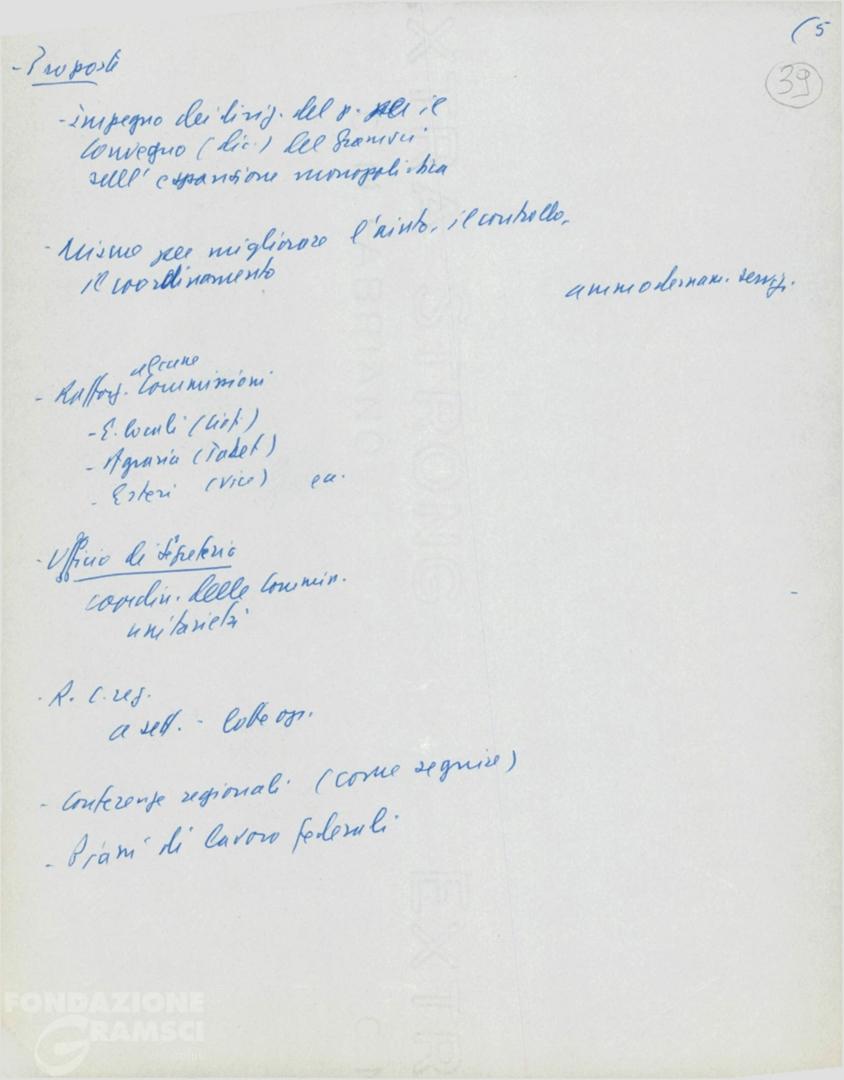 (5
39
- Proposte
- impegno dei dirig. del p. per il
convegno (dic.) del Gramsci
sull'espansione monopolistica
- Misure per migliorare l'aiuto, il controllo,
il coordinamento
ammodernam. servizi.
alcune
- Rafforz. Commissioni
- E. locali (
- Agraria (
- Esteri (vice) ecc.
- Ufficio di Segreteria
coordin. delle Commiss.
unitarietà
- R. C. reg.
a sett. - lotte op.
- Conferenze regionali (come seguire)
- Piani di lavoro federali
FONDAZIONE
GRAMSCI